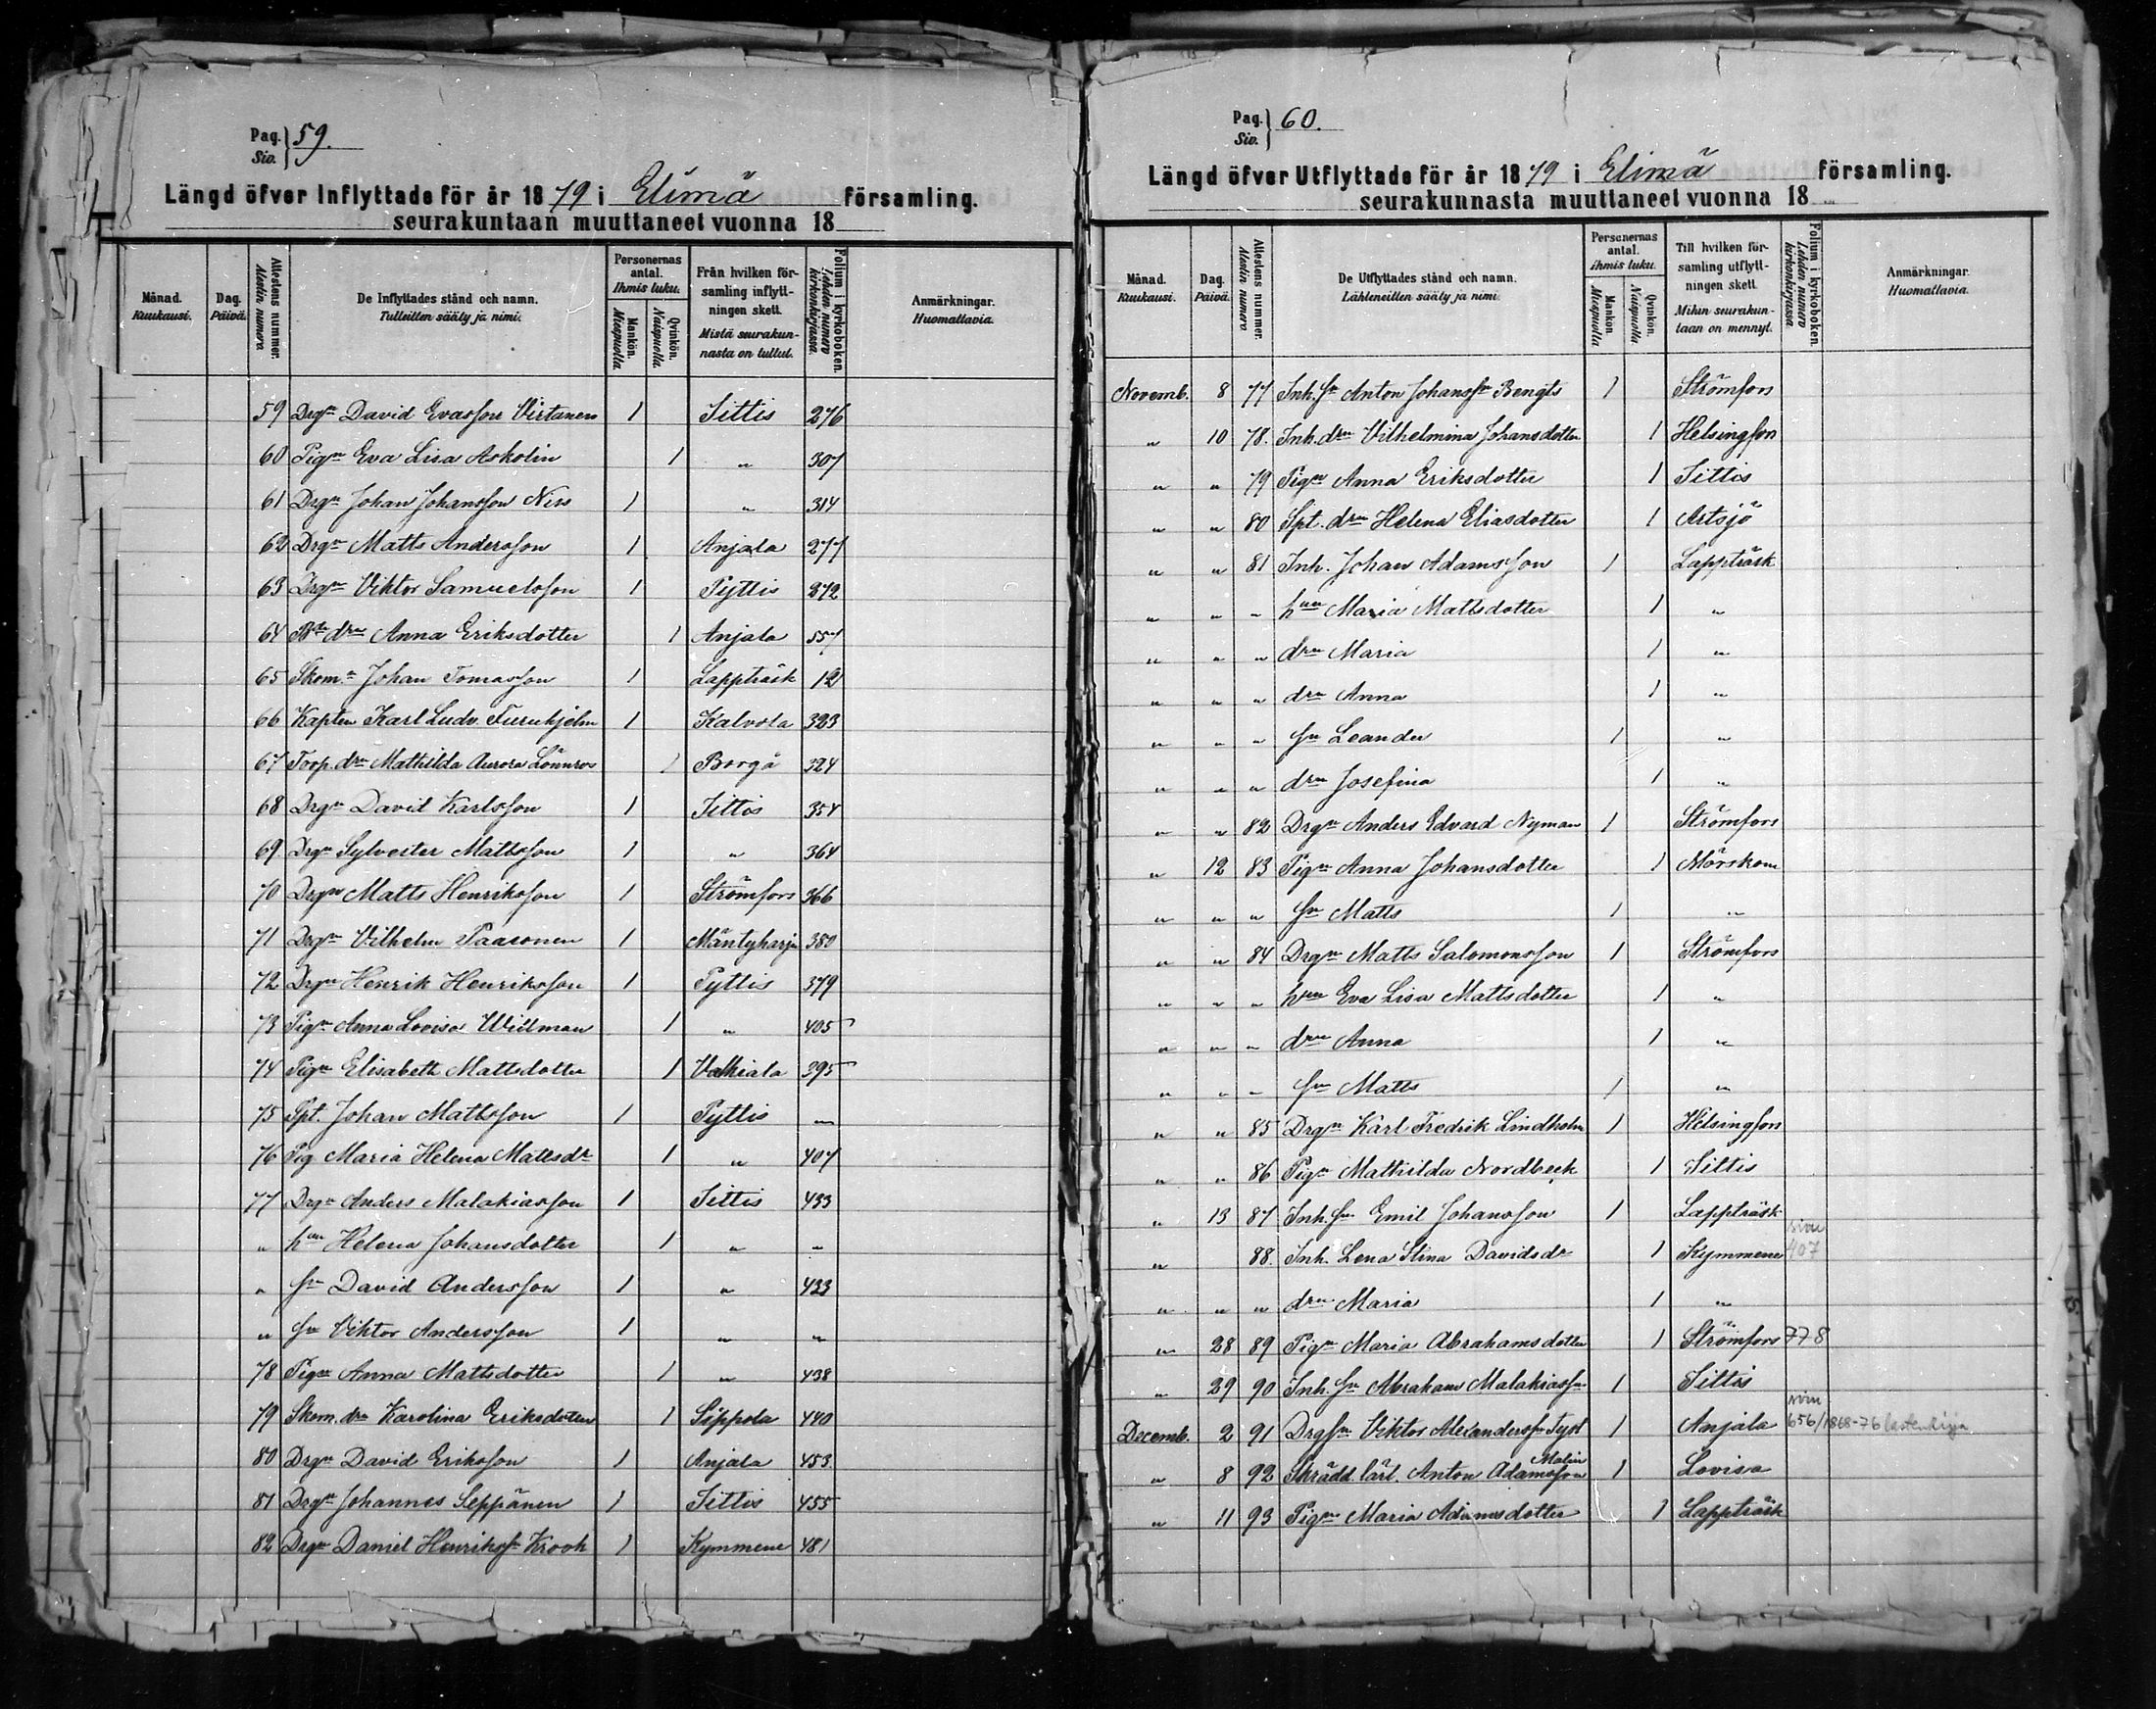 Pag. Siv. 59.
Längd öfver Inflyttade för år 1879 i Elimä församling.
seurakuntaan muuttaneet vuonna 18
Månad. Kuukausi. Dag. Päivä. Attestens nummer. Atestin numero De Inflyttades stånd och namn. Tulleitten sääty ja nimi. Personernas antal. Ihmis luku. Mankön. Miespuolia Qvinkön. Naispuolia. Från hvilken församling inflyttningen skett. Mistä seurakunnasta on tullut. Folium i kyrkoboken. Lehden numero kirkonkirjassa. Anmärkningar. Huomattavia.
59 Drgn David Evasson Virtanen 1 Sittis 276
60 Pign Eva Lisa Askolin 1 " 307
61 Drgn Johan Johansson Niss 1 " 314
62 Drgn Matts Andersson 1 Anjala 277
63 Drgn Viktor Samuelsson 1 Pyttis 372
64 Bde drn Anna Eriksdotter 1 Anjala 557
65 Skom.n Johan Tomasson 1 Lappträsk 12
66 Kapten Karl Ludv. Furuhjelm 1 Kalvola 323
67 Torp. drn Mathilda Aurora Lönnros 1 Borgå 324
68 Drgn David Karlsson 1 Sittis 354
69 Drgn Sylvester Mattsson 1 " 364
70 Drgn Matts Henriksson 1 Strömfors 366
71 Drgn Vilhelm Paasonen 1 Mäntyharju 380
72 Drgn Henrik Henriksson 1 Pyttis 379
73 Pign Anna Lovisa Willman 1 " 405
74 Pign Elisabeth Mattsdotter 1 Valkiala 395
75 Spt. Johan Mattsson 1 Pyttis "
76 Pig Maria Helena Mattsdr 1 " 407
77 Drgn Anders Malakiasson 1 Sittis 433
" hun Helena Johansdotter 1 " "
" sn David Andersson 1 " 433
" sn Viktor Andersson 1 " "
78 Pign Anna Mattsdotter 1 " 438
79 Skom. drn Karolina Eriksdotter 1 Sippola 440
80 Drgn David Eriksson 1 Anjala 453
81 Drgn Johannes Seppänen 1 Sittis 455
82 Drgn Daniel Henrikssn Krook 1 Kymmene 481
Pag. Siv. 60.
Längd öfver Utflyttade för år 1879 i Elimä församling.
seurakunnasta muuttaneet vuonna 18
Månad. Kuukausi. Dag. Päivä. Attestens nummer. Atestin numero De Utflyttades stånd och namn. Lähteneitten sääty ja nimi. Personernas antal. Ihmis luku. Mankön. Miespuolia Qvinkön. Naispuolia. Till hvilken församling utflyttningen skett. Mihin seurakuntaan on mennyt. Folium i kyrkoboken. Lehden numero kirkonkirjassa. Anmärkningar. Huomattavia.
Novemb. 8 77 Inh. sn Anton Johanssn Bengts 1 Strömfors
" 10 78. Inh. drn Vilhelmina Johansdotter 1 Helsingfors
" " 79 Pign Anna Eriksdotter 1 Sittis
" " 80 Spt. drn Helena Eliasdotter 1 Artsjö
" " 81 Inh. Johan Adamsson 1 Lappträsk
" " " hun Maria Mattsdotter 1 "
" " " drn Maria 1 "
" " " drn Anna 1 "
" " " sn Leander 1 "
" " " drn Josefina 1 "
" " 82 Drgn Anders Edvard Nyman 1 Strömfors
" 12 83 Pign Anna Johansdotter 1 Mörskom
" " " sn Matts 1 "
" " 84 Drgn Matts Salomonsson 1 Strömfors
" " " hun Eva Lisa Mattsdotter 1 "
" " " drn Anna 1 "
" " " sn Matts 1 "
" " 85 Drgn Karl Fredrik Lindholm 1 Helsingfors
" " 86 Pign Mathilda Nordbeck 1 Sittis
" 13 87 Inh. sn Emil Johansson 1 Lappträsk
" 88. Inh. Lena Stina Davidsdr 1 Kymmene sivu 407
" " " drn Maria 1 "
" 28 89 Pign Maria Abrahamsdotter 1 Strömfors 778
" 29 90 Inh. sn Abraham Malakiassn 1 Sittis
Decemb. 2 91 Drgsn Viktor Alexanderssn Tyst 1 Anjala sivu 656/1868-76 lastenkirja
" 8 92 Skrädd. lärl. Anton Adamsson Malin 1 Lovisa
" 11 93 Pign Maria Adamsdotter 1 Lappträsk